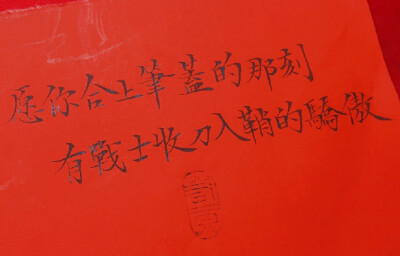 愿你合上筆蓋的那刻
有戰士收刀入鞘的驕傲